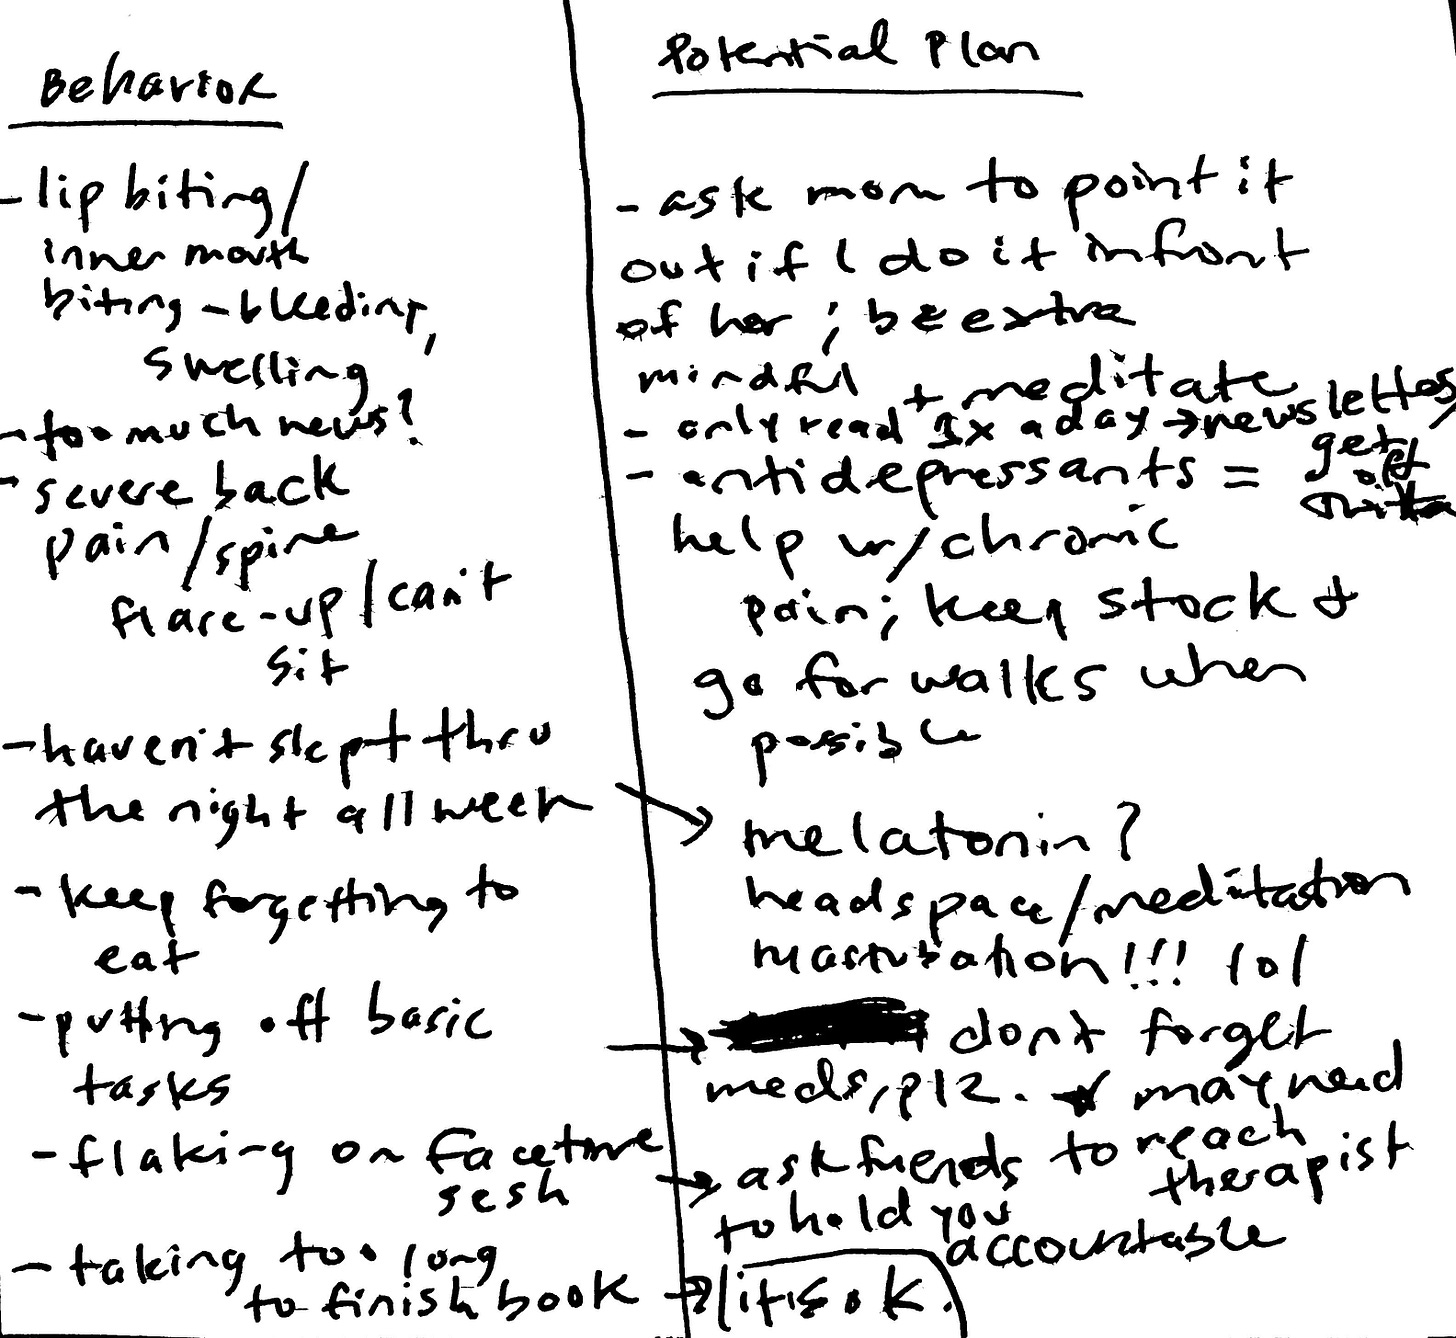 Behavior
- lip biting/
inner mouth
biting - bleeding,
swelling
- too much news?
- severe back
pain/spine
flare-up/can't
sit
- haven't slept thru
the night all week
- keep forgetting to
eat
- putting off basic
tasks
- flaking on facetime
sesh
- taking too long
to finish book
Potential Plan
- ask mom to point it
out if I do it infront
of her; be extra
mindful + meditate
- only read 1x a day → newsletters
- antidepressants = get off
help w/chronic
pain; keep stock &
go for walks when
possible
→ melatonin?
headspace/meditation
masturbation!!! lol
→ don't forget
meds, plz. may need
to reach
therapist
→ ask friends
to hold you
accountable
→ it's ok.